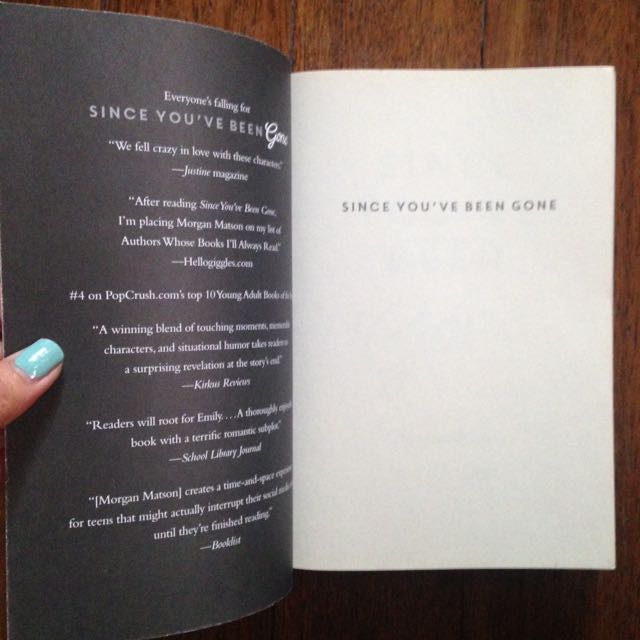 Everyone's falling for
SINCE YOU'VE BEEN Gone
"We fell crazy in love with these characters."
—Justine magazine
"After reading Since You've Been Gone,
I'm placing Morgan Matson on my list of
Authors Whose Books I'll Always Read."
—Hellogiggles.com
#4 on PopCrush.com's top 10 Young Adult Books of the
"A winning blend of touching moments,
characters, and situational humor takes readers
a surprising revelation at the story's end."
—Kirkus Reviews
"Readers will root for Emily. . . . A thoroughly
book with a terrific romantic subplot."
—School Library Journal
"[Morgan Matson] creates a time-and-space
for teens that might actually interrupt their social
until they're finished reading."
—Booklist
SINCE YOU'VE BEEN GONE